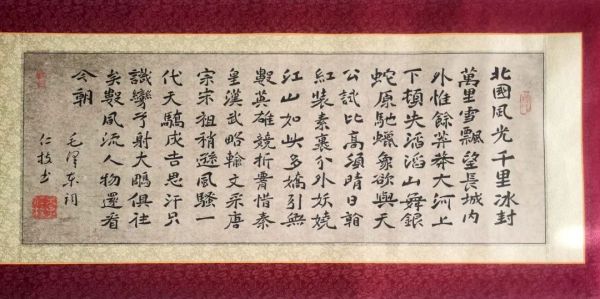 北國風光千里冰封
萬里雪飄望長城內
外惟餘莽莽大河上
下頓失滔滔山舞銀
蛇原馳蠟象欲與天
公試比高須晴日
紅裝素裹分外妖嬈
江山如此多嬌引無
數英雄競折腰惜秦
皇漢武略輸文采唐
宗宋祖稍遜風騷一
代天驕成吉思汗只
識彎弓射大鵰俱往
矣數風流人物還看
今朝
毛澤东詞
仁技书